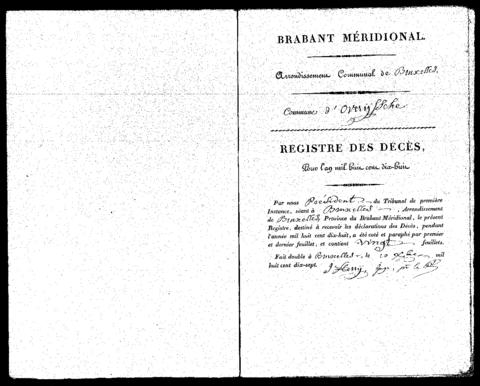 BRABANT MÉRIDIONAL.
Arrondissement Communal de Bruxelles.
Commune d'Overijssche
REGISTRE DES DÉCÈS,
Pour l'an mil huit cent dix-huit
Par nous Président du Tribunal de première
Instance, séant à Bruxelles, Arrondissement
de Bruxelles, Province du Brabant Méridional, le présent
Registre, destiné à recevoir les déclarations des Décès, pendant
l'année mil huit cent dix-huit, a été coté et paraphé par premier
et dernier feuillet, et contient vingt feuillets.
Fait double à Bruxelles, le 10 Xbre mil
huit cent dix-sept.